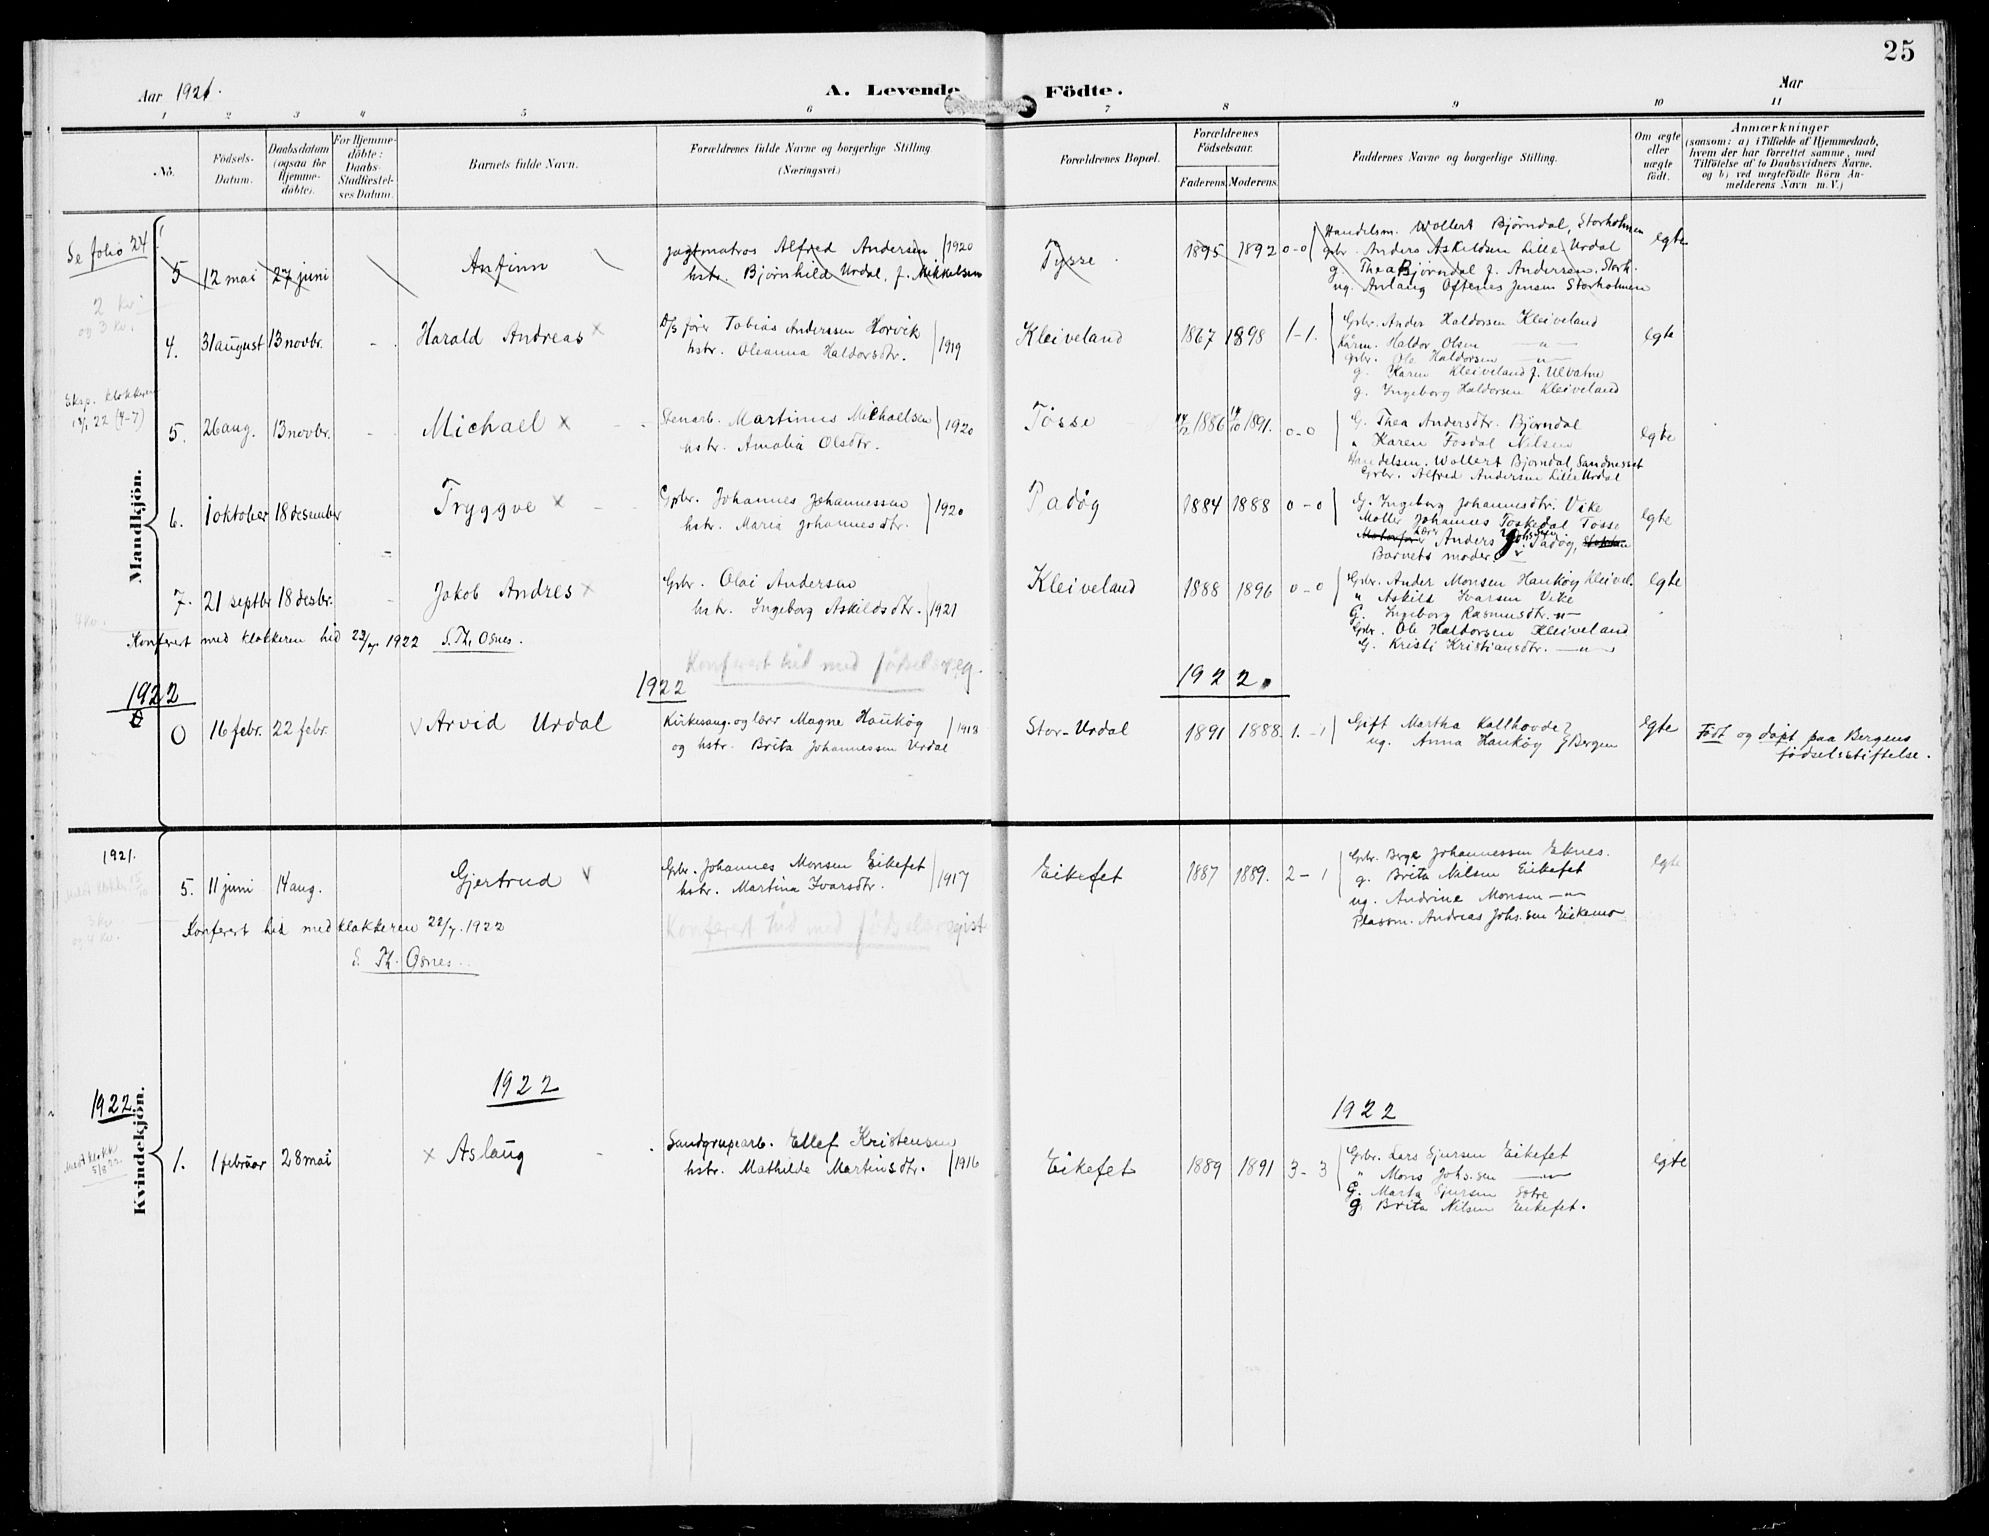 25
Aar 1921.
A. Levende Födte.
Aar
1 2 3 4 5 6 7 8 9 10 11
No.
Födsels-Datum.
Daabsdatum (ogsaa for Hjemme-döbte).
For Hjemme-döbte: Daabs-Stadfæstel-ses Datum.
Barnets fulde Navn.
Forældrenes fulde Navne og borgerlige Stilling.
(Næringsvei.)
Forældrenes Bopæl.
Forældrenes Födselsaar.
Faderens. Moderens.
Faddernes Navne og borgerlige Stilling.
Om ægte eller uægte födt.
Anmærkninger
(saasom: a) i Tilfælde af Hjemmedaab,
hvem der har forrettet samme, med
Tilföielse af to Daabsvidners Navne.
og b) ved uægtefödte Börn An-
melderens Navn m. V.)
Mandkjön.
Se folio 24
5 12 mai 27 juni Anfinn
Jagtmatros Alfred Andersen 1920
hstr. Bjørnhild Urdal, f. Mikkelsen
Tysse 1895 1892 0-0
Handelsm. Wollert Bjørndal, Storholmen
gbr. Anders Askildsen Lille Urdal
g. Thea Bjørndal f. Andersen, Storh.
ug. Anlaug Oftenes Jensen Storholmen
egte
2 kv.
og 3 kv.
4. 31 august 13 novbr. - Harald Andreas x
D/S fører Tobias Anderssen Horvik
hstr. Oleanna Haldorsdtr. 1919
Kleiveland 1867 1898 1-1.
Grbr. Ander Haldorsen Kleiveland
Kårm. Haldor Olsen —"—
grbr. Ole Haldorsen —"—
g. Karen Kleiveland f. Ulvatne
g. Ingeborg Haldorsen Kleiveland
egte
Eksp. klokkeren
18/1 22 (4-7)
5. 26 aug. 13 novbr. - Michael x
Stenarb. Martinus Michaelsen 1920
hstr. Amalia Olsdtr.
Tosse 14/12 1886 14/10 1891. 0-0
G. Thea Andersdtr. Bjørndal
" Karen Fosdal Nilsen
Handelsm. Wollert Bjørndal, Sandnesset
Grbr. Alfred Andersen Lille Urdal
egte
6. 1 oktober 18 desember Tryggve x
Grbr. Johannes Johannessen 1920
hstr. Maria Johannesdtr.
Padøg 1884 1888 0-0
G. Ingeborg Johannesdtr. Vike
Møller Johannes Toskedal Tosse
Lærer Anders Johs.sen Padøg,
Barnets moder.
egte
7. 21 septbr 18 desbr. - Jakob Andres x
Grbr. Olai Andersen
hstr. Ingeborg Askildsdtr. 1921
Kleiveland 1888 1896 0-0
Grbr. Ander Monsen Haukøy Kleivel.
" Askild Ivarsen Vike
G. Ingeborg Rasmusdtr. —"—
Grbr. Ole Haldorsen Kleiveland
G. Kristi Kristiansdtr. —"—
egte
4 kv.
Konferert med klokkeren hid 23/4 1922 S. Th. Osnes.
Konferert hid med fødselsreg.
1922 1922 1922.
0 16 febr. 22 febr. v Arvid Urdal
Kirkesang. og lærer Magne Haukøy 1918
og hstr. Brita Johannessen Urdal
Stor-Urdal 1891 1888. 1.-1
Gift Martha Kallhovde
ug. Anna Haukøy } Bergen
egte
Født og døpt paa Bergens
fødselsstiftelse.
Kvindekjön.
1921.
5. 11 juni 14 aug. Gjertrud v
Grbr. Johannes Monsen Eikefet 1917
hstr. Martina Ivarsdtr.
Eikefet 1887 1889. 2-1
Grbr. Berge Johannessen Eknes.
g. Brita Nilsen Eikefet
ug. Andrine Monsen —"—
Plassm. Andreas Johs.sen Eikemo
egte
3 kv.
og 4 kv.
Konferert hid med klokkeren 22/4. 1922
S. Th. Osnes.
Konferert hid med fødselsregist
1922 1922 1922
1. 1 februar 28 mai x Aslaug
Sandgrupearb. Ellef Kristensen
hstr. Mathilde Martinsdtr. 1916
Eikefet 1889 1891 3-3
Grbr. Lars Gjersen Eikefet
" Mons Johs.sen —"—
G. Marta Gjersen Sætre
g. Brita Nilsen Eikefet.
egte